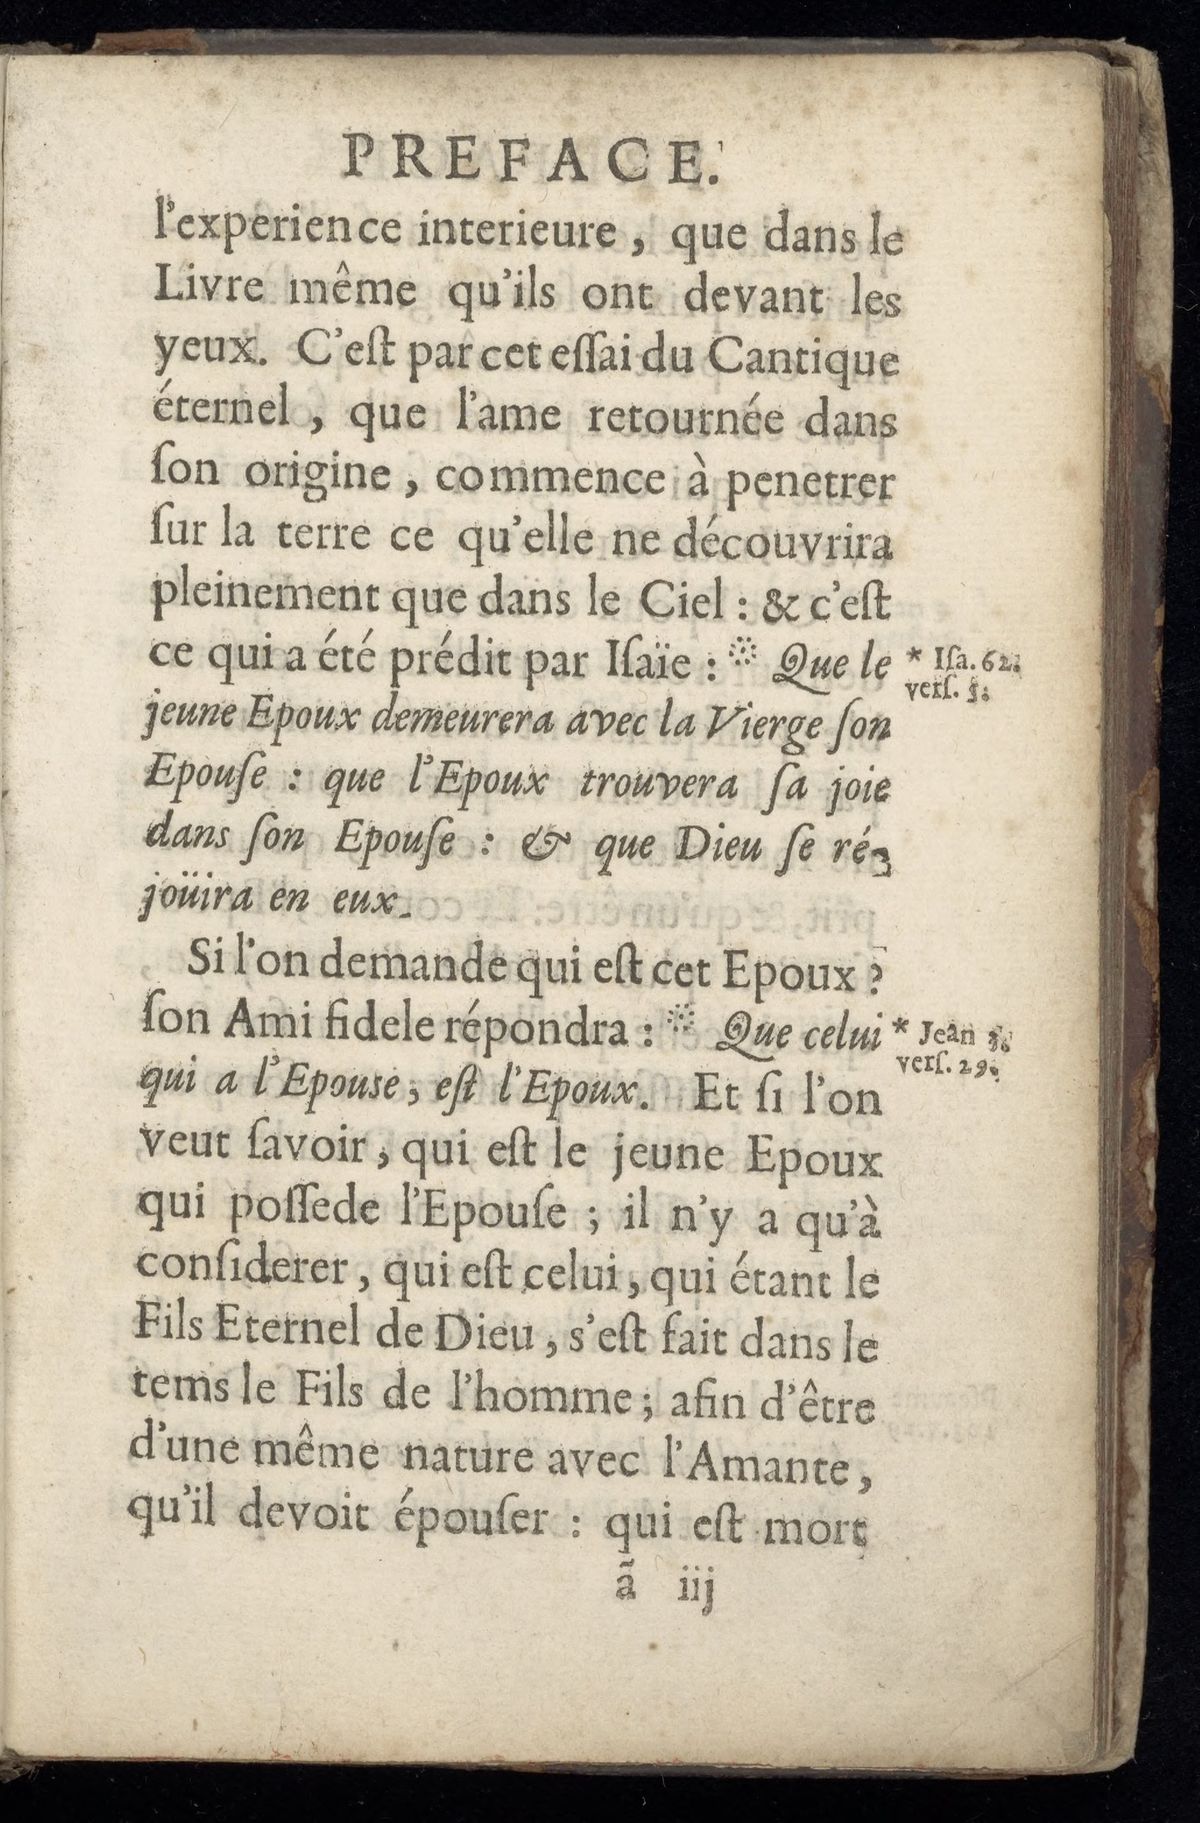 PREFACE.
l'experience interieure, que dans le
Livre même qu'ils ont devant les
yeux. C'eſt par cet eſſai du Cantique
éternel, que l'ame retournée dans
ſon origine, commence à penetrer
ſur la terre ce qu'elle ne découvrira
pleinement que dans le Ciel : & c'eſt
ce qui a été prédit par Iſaïe : * Que le
* Iſa. 62.
verſ. 5.
jeune Epoux demeurera avec la Vierge ſon
Epouſe : que l'Epoux trouvera ſa joie
dans ſon Epouſe : & que Dieu ſe ré-
joüira en eux.
Si l'on demande qui eſt cet Epoux ?
ſon Ami fidele répondra : * Que celui
* Jean 3.
verſ. 29.
qui a l'Epouse, eſt l'Epoux. Et ſi l'on
veut ſavoir, qui eſt le jeune Epoux
qui poſſede l'Epouſe ; il n'y a qu'à
conſiderer, qui eſt celui, qui étant le
Fils Eternel de Dieu, s'eſt fait dans le
tems le Fils de l'homme ; afin d'être
d'une même nature avec l'Amante,
qu'il devoit épouſer : qui eſt mort
ã iij